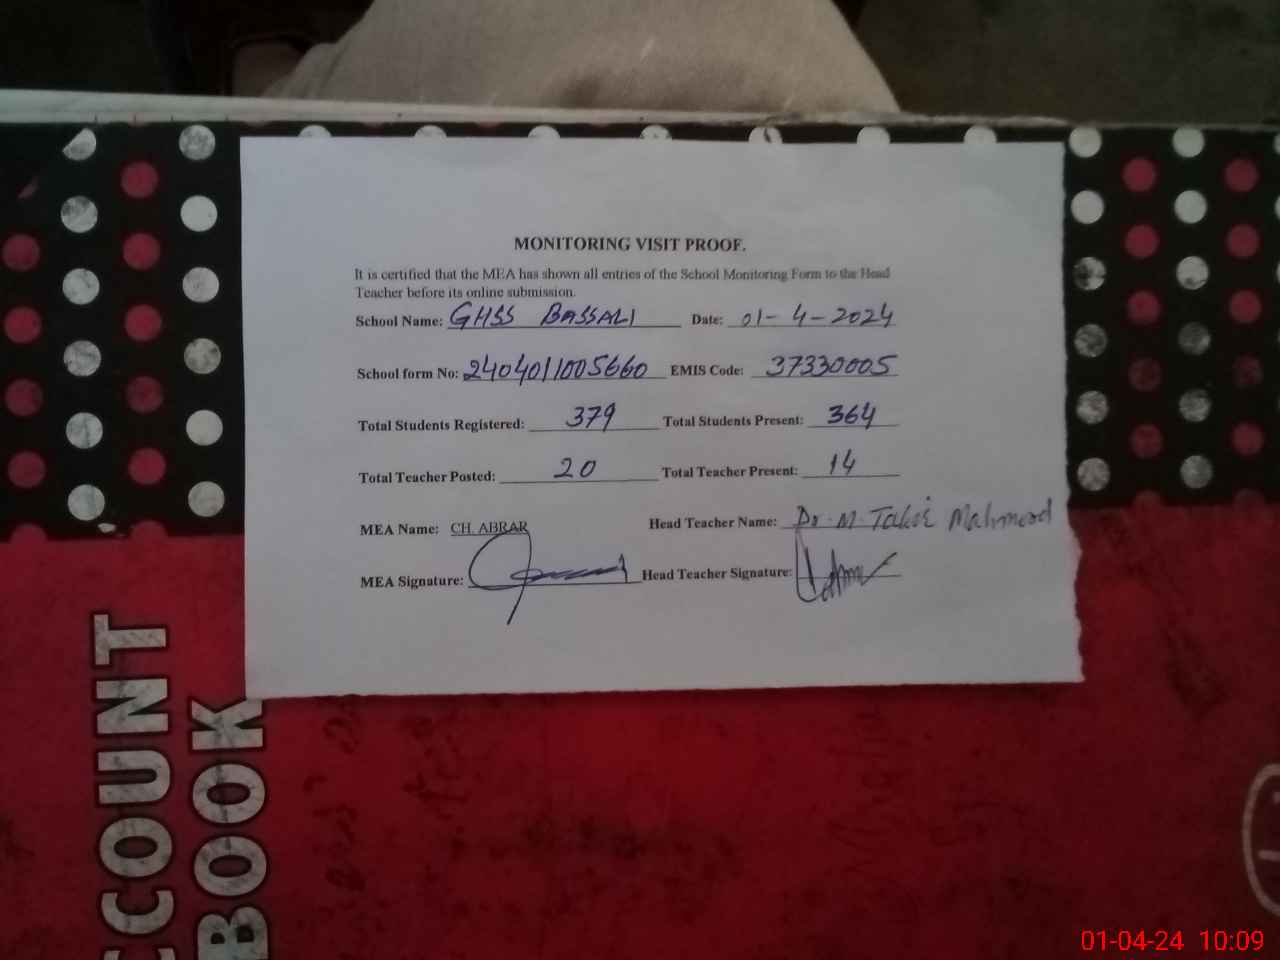 MONITORING VISIT PROOF.
It is certified that the MEA has shown all entries of the School Monitoring Form to the Head
Teacher before its online submission.
School Name: GHSS BASSALI Date: 01-4-2024
School form No: 2404011005660 EMIS Code: 37330005
Total Students Registered: 379 Total Students Present: 364
Total Teacher Posted: 20 Total Teacher Present: 14
MEA Name: CH. ABRAR Head Teacher Name: Dr. M. Takir Mahmood
MEA Signature: Head Teacher Signature:
COUNT
BOOK
01-04-24 10:09